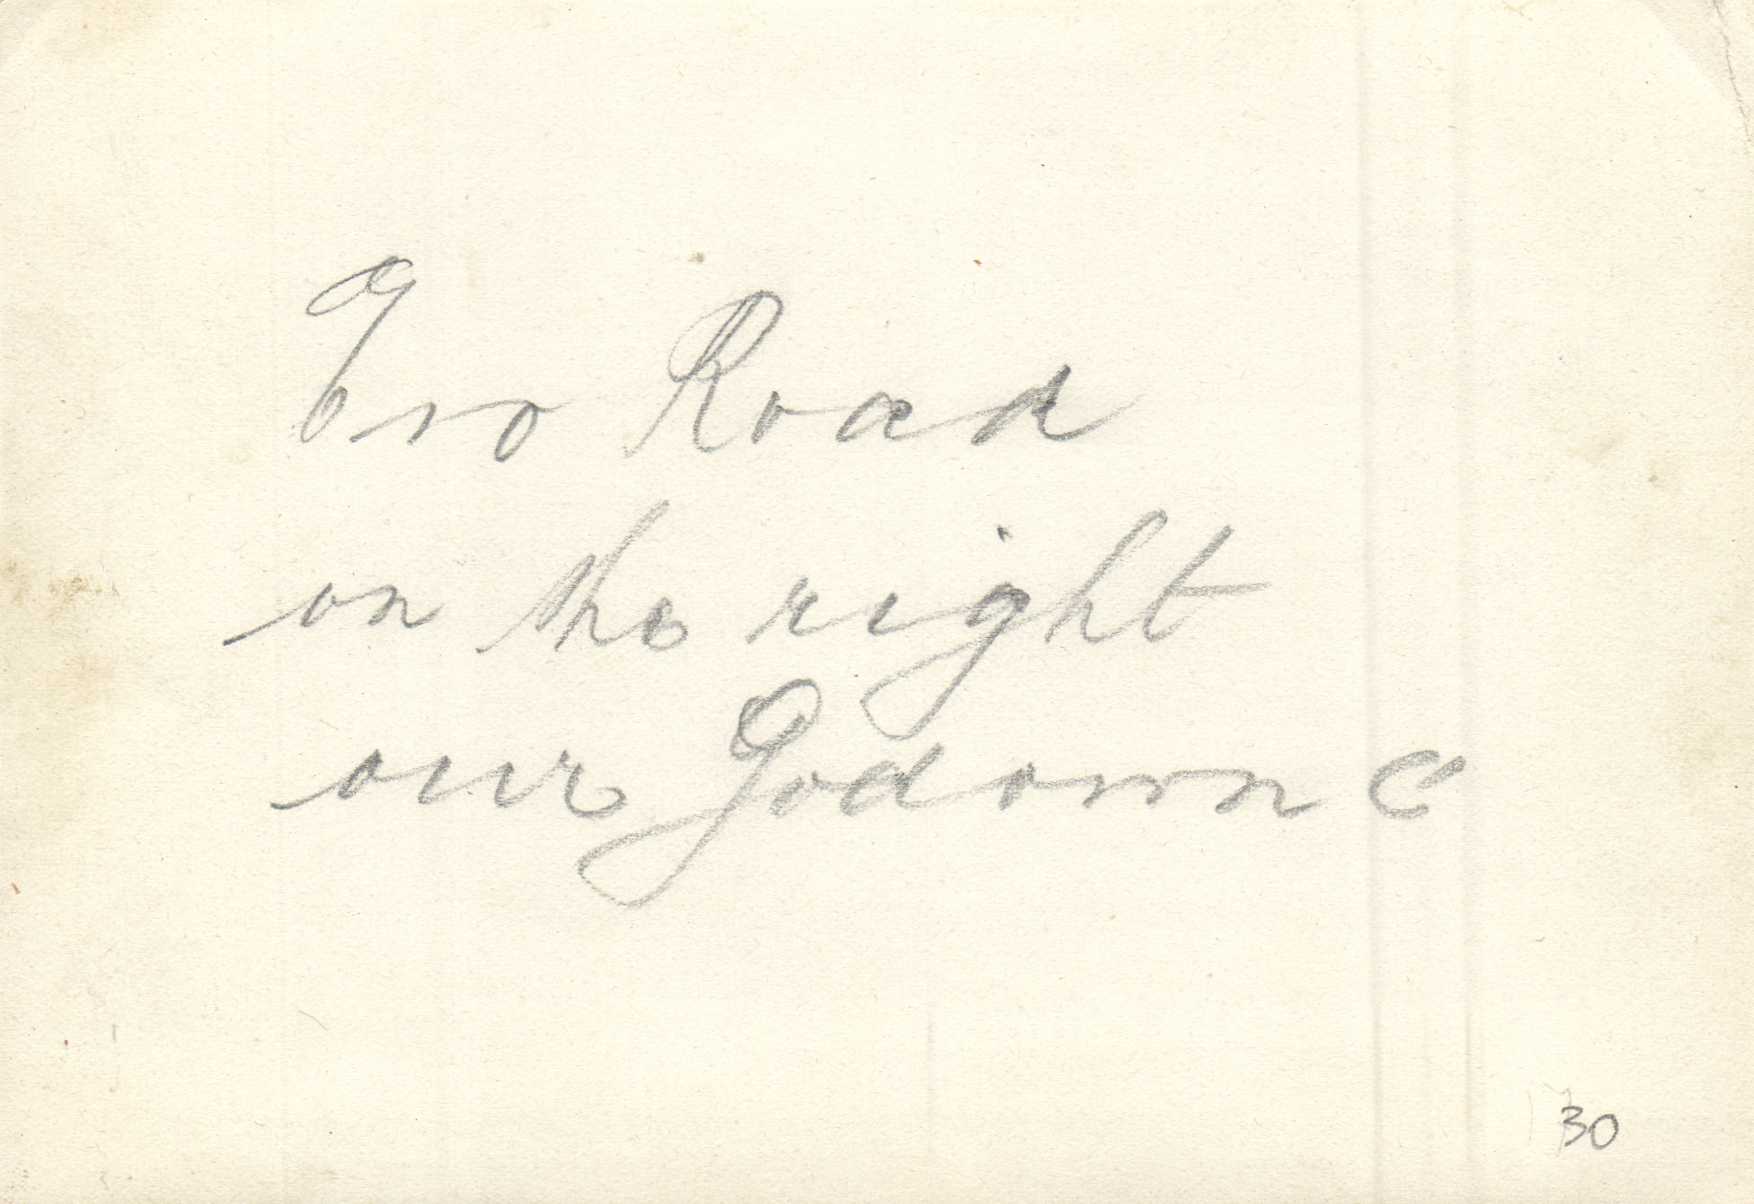 Ewo Road
on the right
our Godown
30